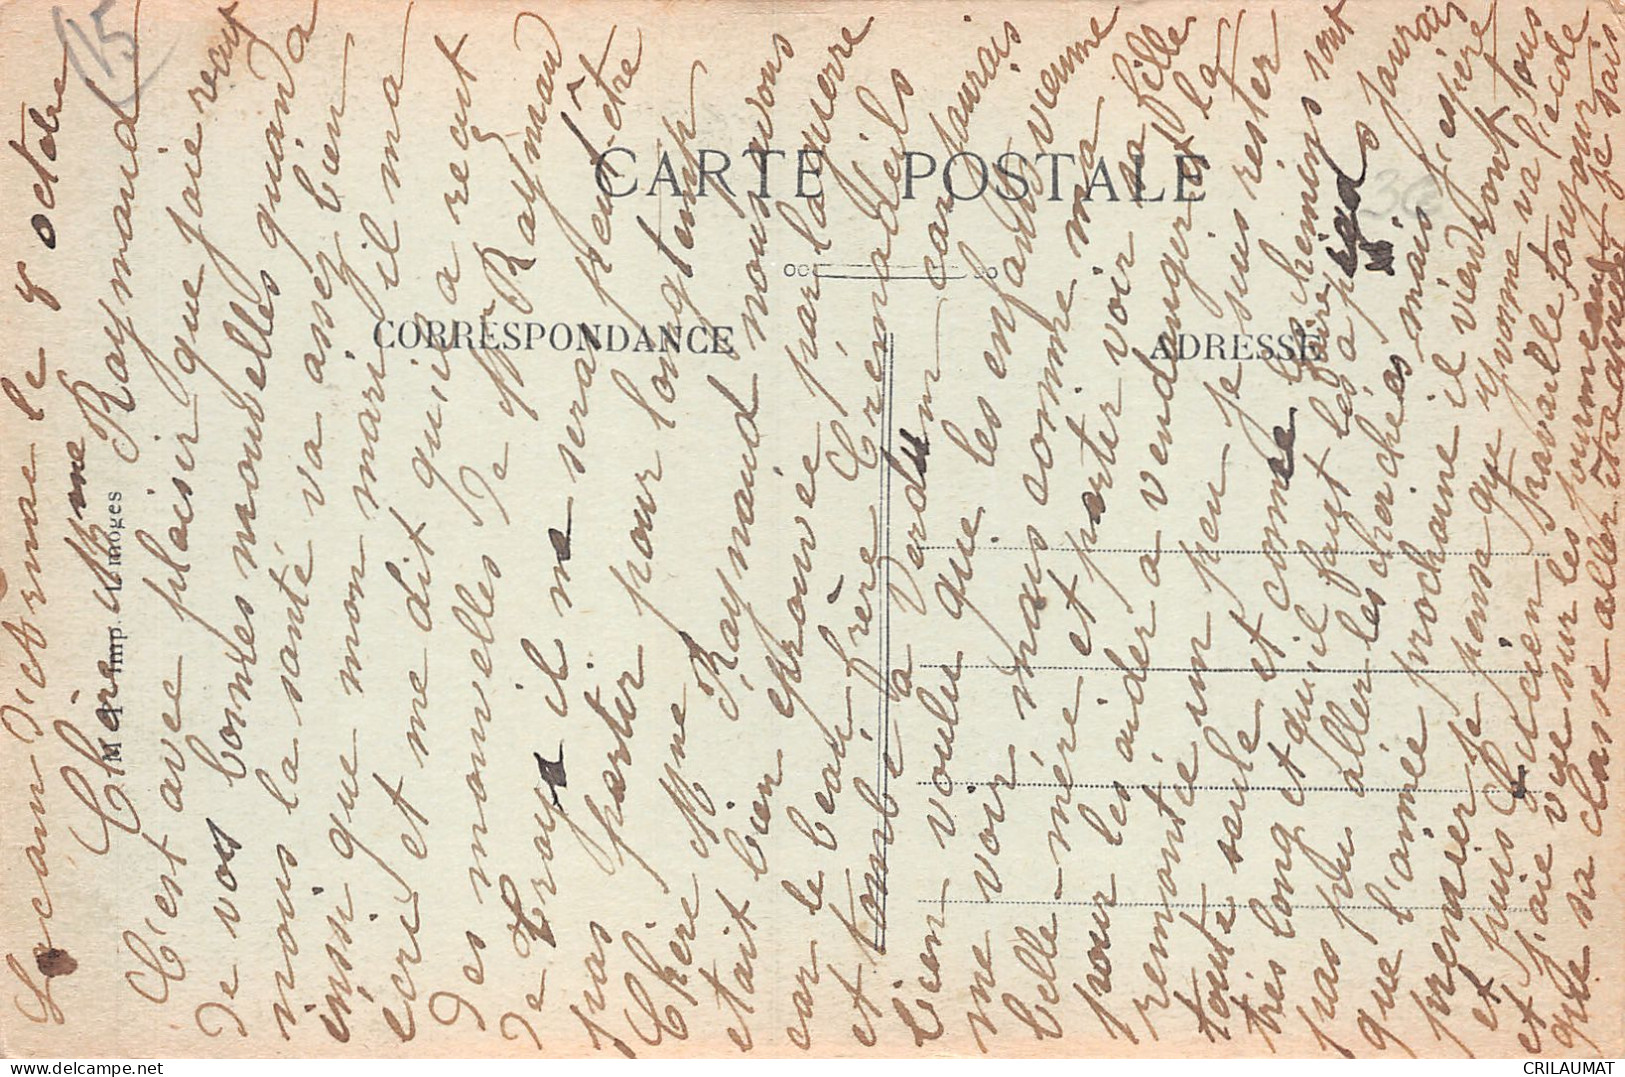 CARTE POSTALE
CORRESPONDANCE
ADRESSE
Imp. Limoges
15
36
Lacam d'Arnac le 8 octobre
Chère Mme Raymond
C'est avec plaisir que j'aie recut
de vos bonnes nouvelles quand a
nous la santé va assez bien
insi que mon mari il ma
écri et me dit qu'il a recut
des nouvelles de Mr Raymond
de Troye il ne sera peut-être
pas partir pour longtemp
Chère Mme Raymond nous avons
etait bien éprouvée par la guerre
car le beau frère
et tombé a Verdun car jaurais
bien voulu que les enfants vienne
me voir mais comme ma
belle-mère et partir voir sa fille
pour les aider a vendanger et la
remontée un peu je puis rester
toute seule et comme les chemins sont
très long et qu'il faut les
pas pu aller les cherchées mais j'aurais
que l'année prochaine il viendront j'espère
et puis Lucien travaille toujour
et j'aie vue sur les journeaux
que sa classe aller être
je pense que Yvonne va l'école
je sais
tous